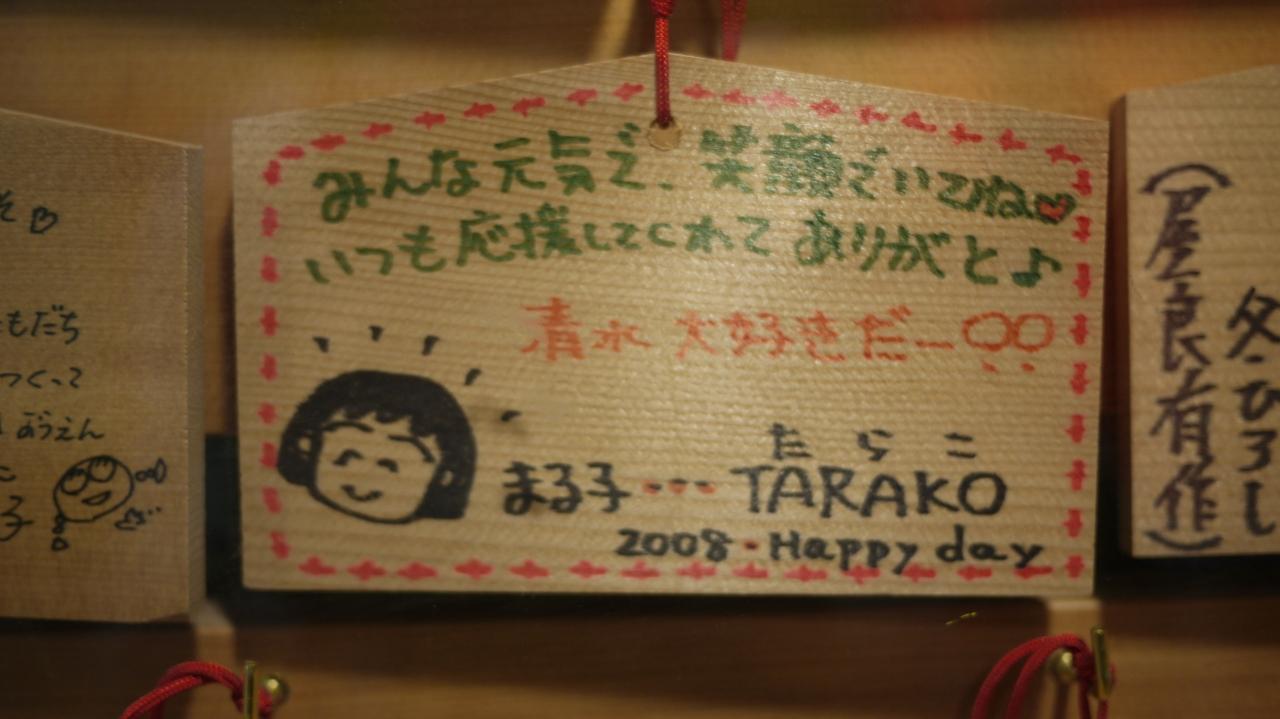 みんな元気で、笑顔でいてね♡
いつも応援してくれて ありがと♪
清水 大好きだー
たらこ
まる子・・・ TARAKO
2008・Happy day
もだち
つくって
おうえん
子
(屋良有作)
冬ひろし